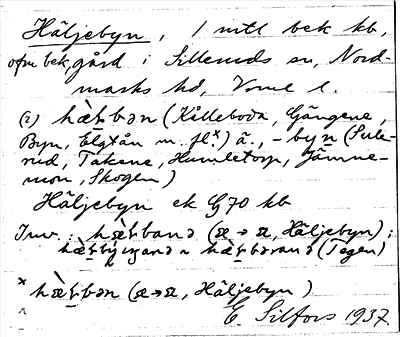 Häljebyn, 1 mtl bek kb,
ofm bek, gård i Silleruds sn, Nord-
marks hd, Vrml l.
(i) hæ̀ḷbən (Killeboda, Gängene,
Byn, Elgtån m. fl.ˣ) ä., -byn (Sule-
rud, Takene, Humletorp, Jämne-
mon, Skogen)
Häljebyn ek G70 kb
Inv.: hæḷband (æ→a, Häljebyn);
hæḷbyiŋand ~ hæḷbərand (Tegen)
ˣ hæ̀ḷbən (æ→a, Häljebyn)
E. Silfors 1937.